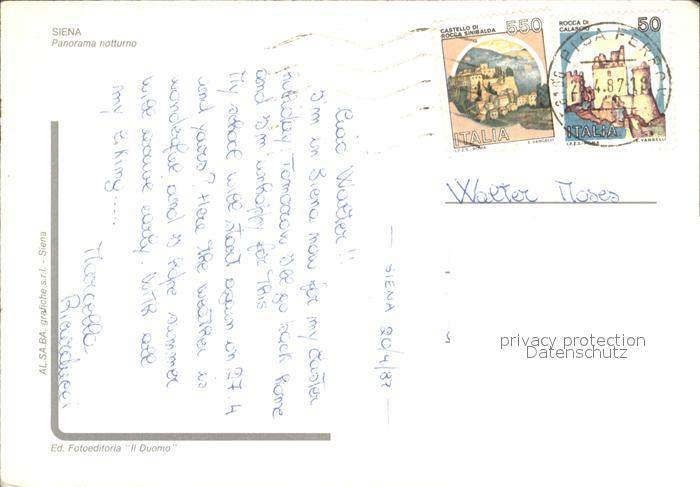 SIENA
Panorama notturno
CASTELLO DI
ROCCA SINIBALDA
550
ITALIA
I.P.Z.S. - ROMA
E. VANGELLI
ROCCA DI
CALASCIO
50
ITALIA
I.P.Z.S. - ROMA
E. VANGELLI
PISA FERROV
.4.87-19
Walter Moses
privacy protection
Datenschutz
— SIENA 20/4/87 —
Ciao Walter!!
I'm in Siena now for my Easter
holiday. Tomorrow I'll go back home
and I'm unhappy for this
My school will start again on 27.4
and yours? Here the weather is
wonderful and I hope summer
will arrive early. With all
my liking....
Marcella
Ricarducci
AL.SA.BA. grafiche s.r.l. - Siena
Ed. Fotoeditoria "Il Duomo"